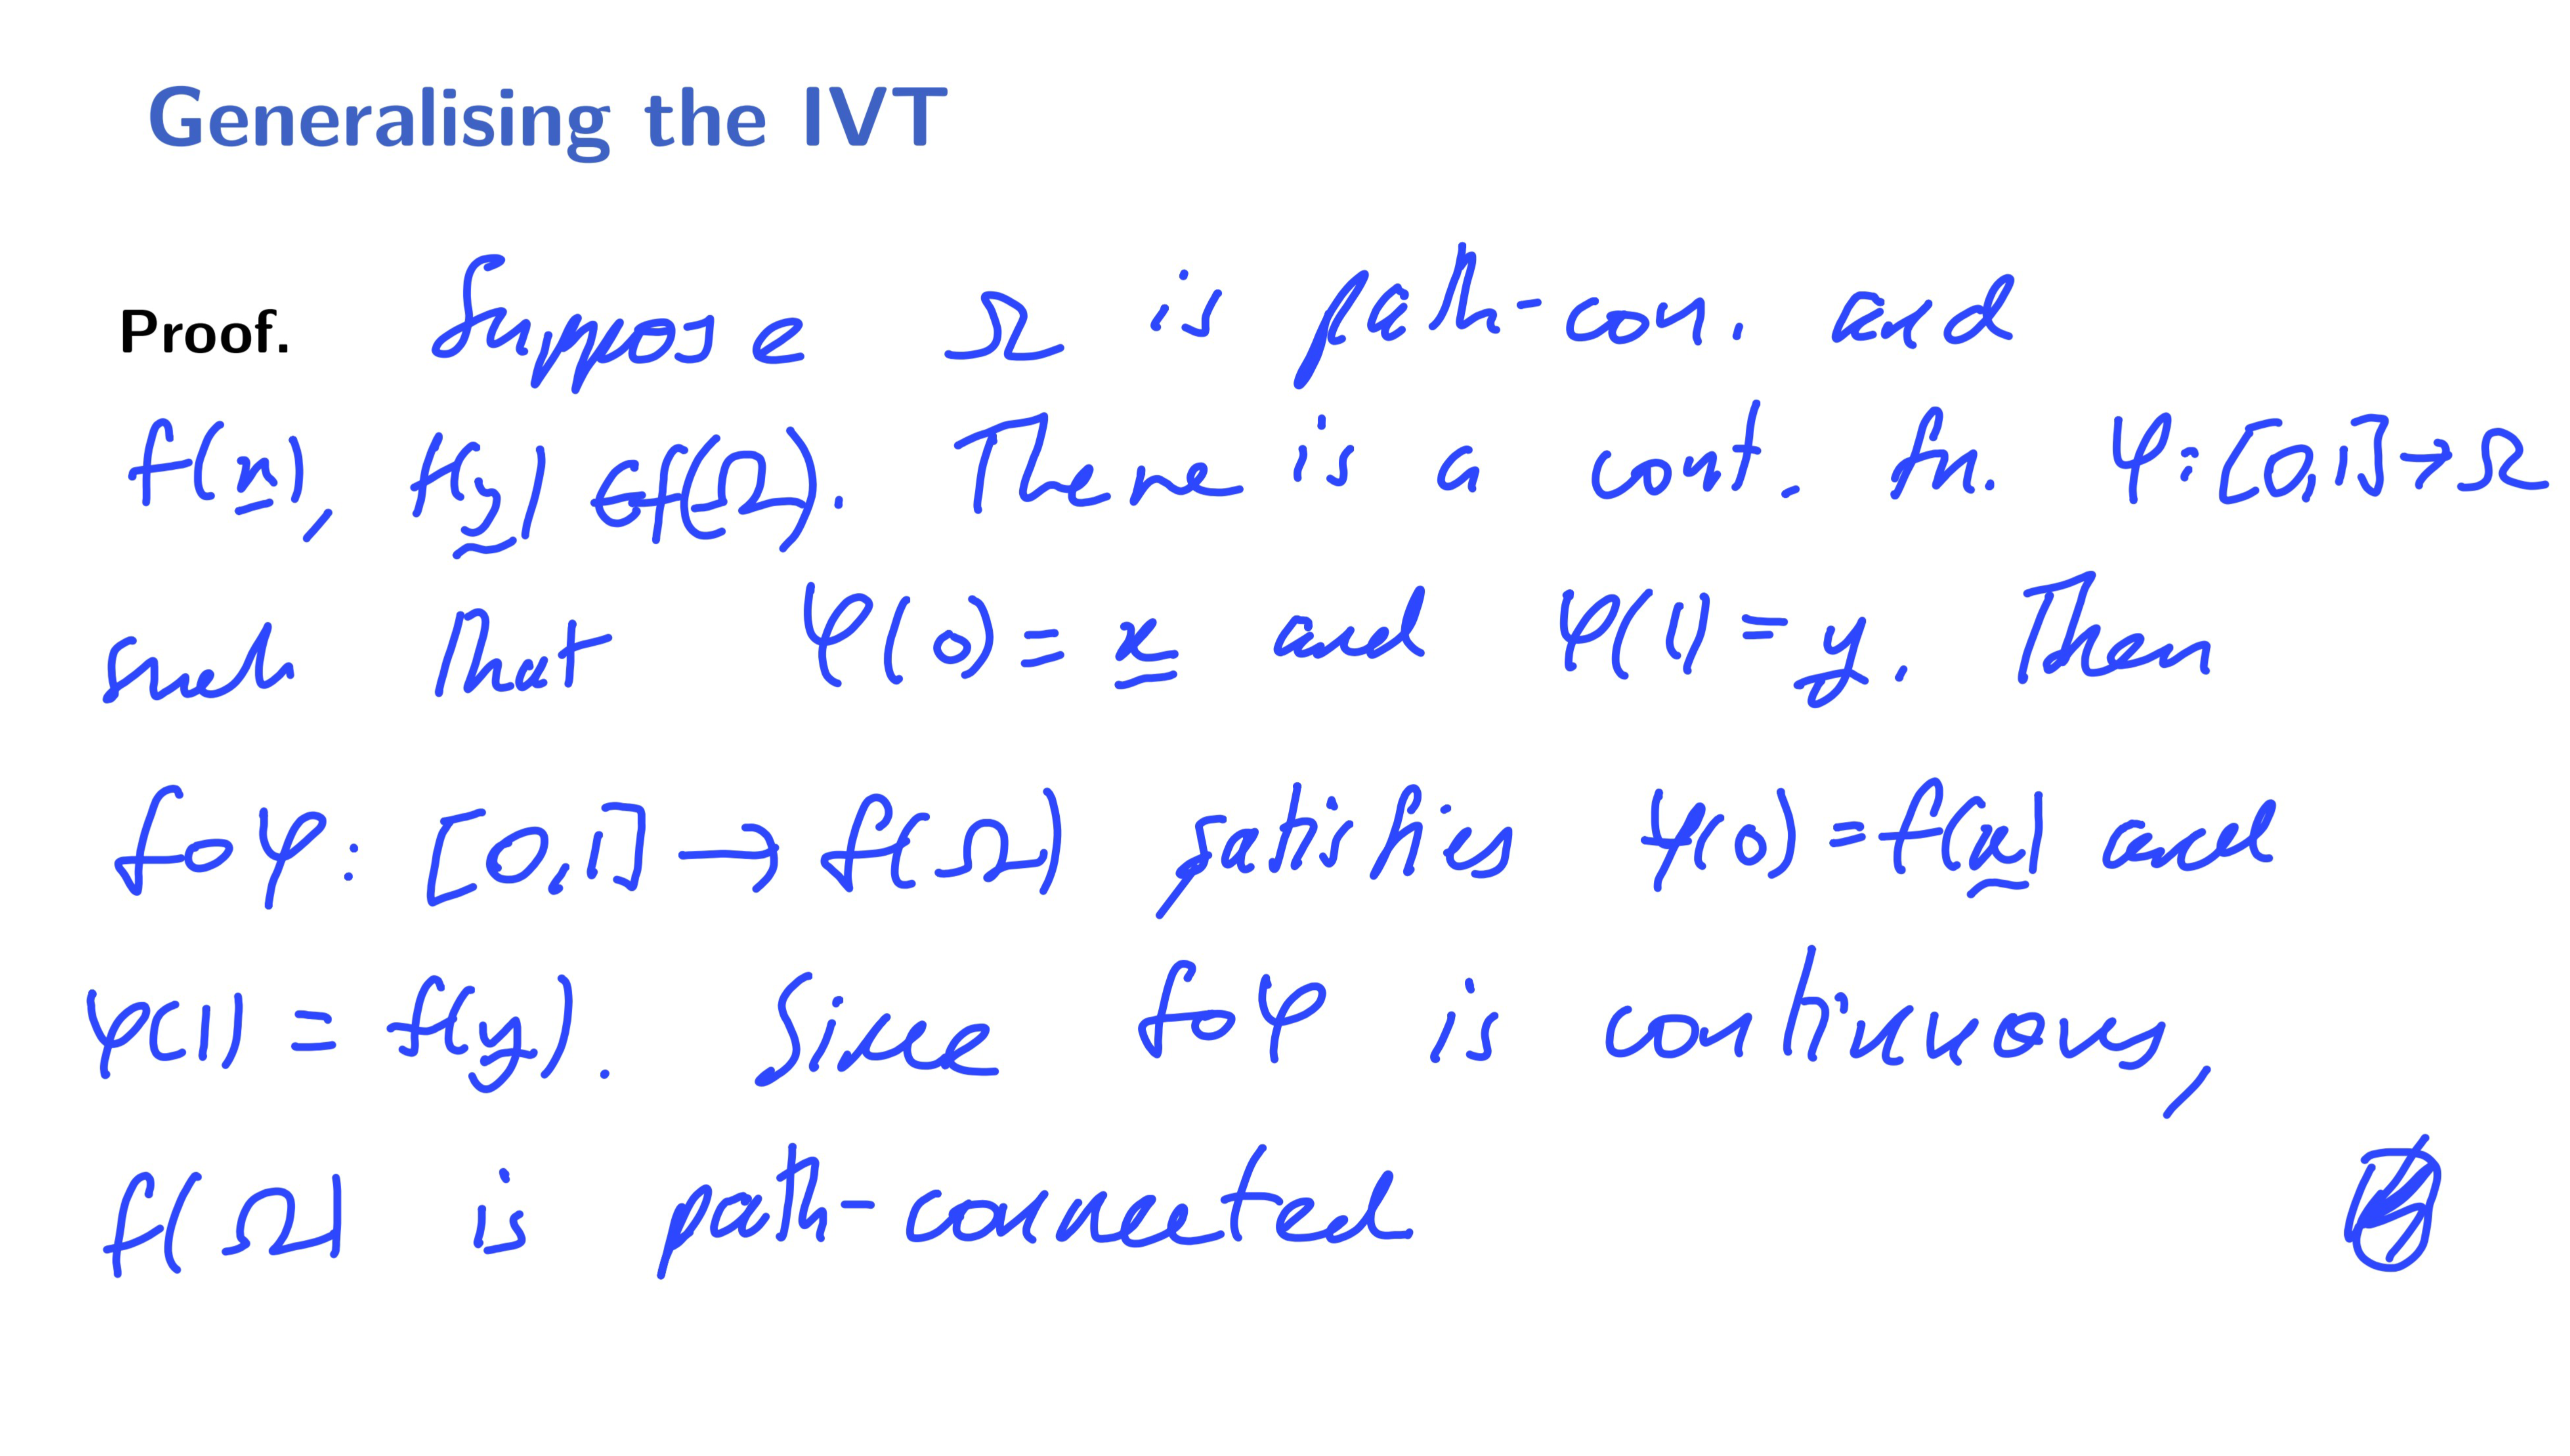 Generalising the IVT
Proof. Suppose Ω is path-con. and
f(x), f(y) ∈ f(Ω). There is a cont. fn. φ: [0,1] → Ω
such that φ(0) = x and φ(1) = y. Then
f∘φ: [0,1] → f(Ω) satisfies φ(0) = f(x) and
φ(1) = f(y). Since f∘φ is continuous,
f(Ω) is path-connected